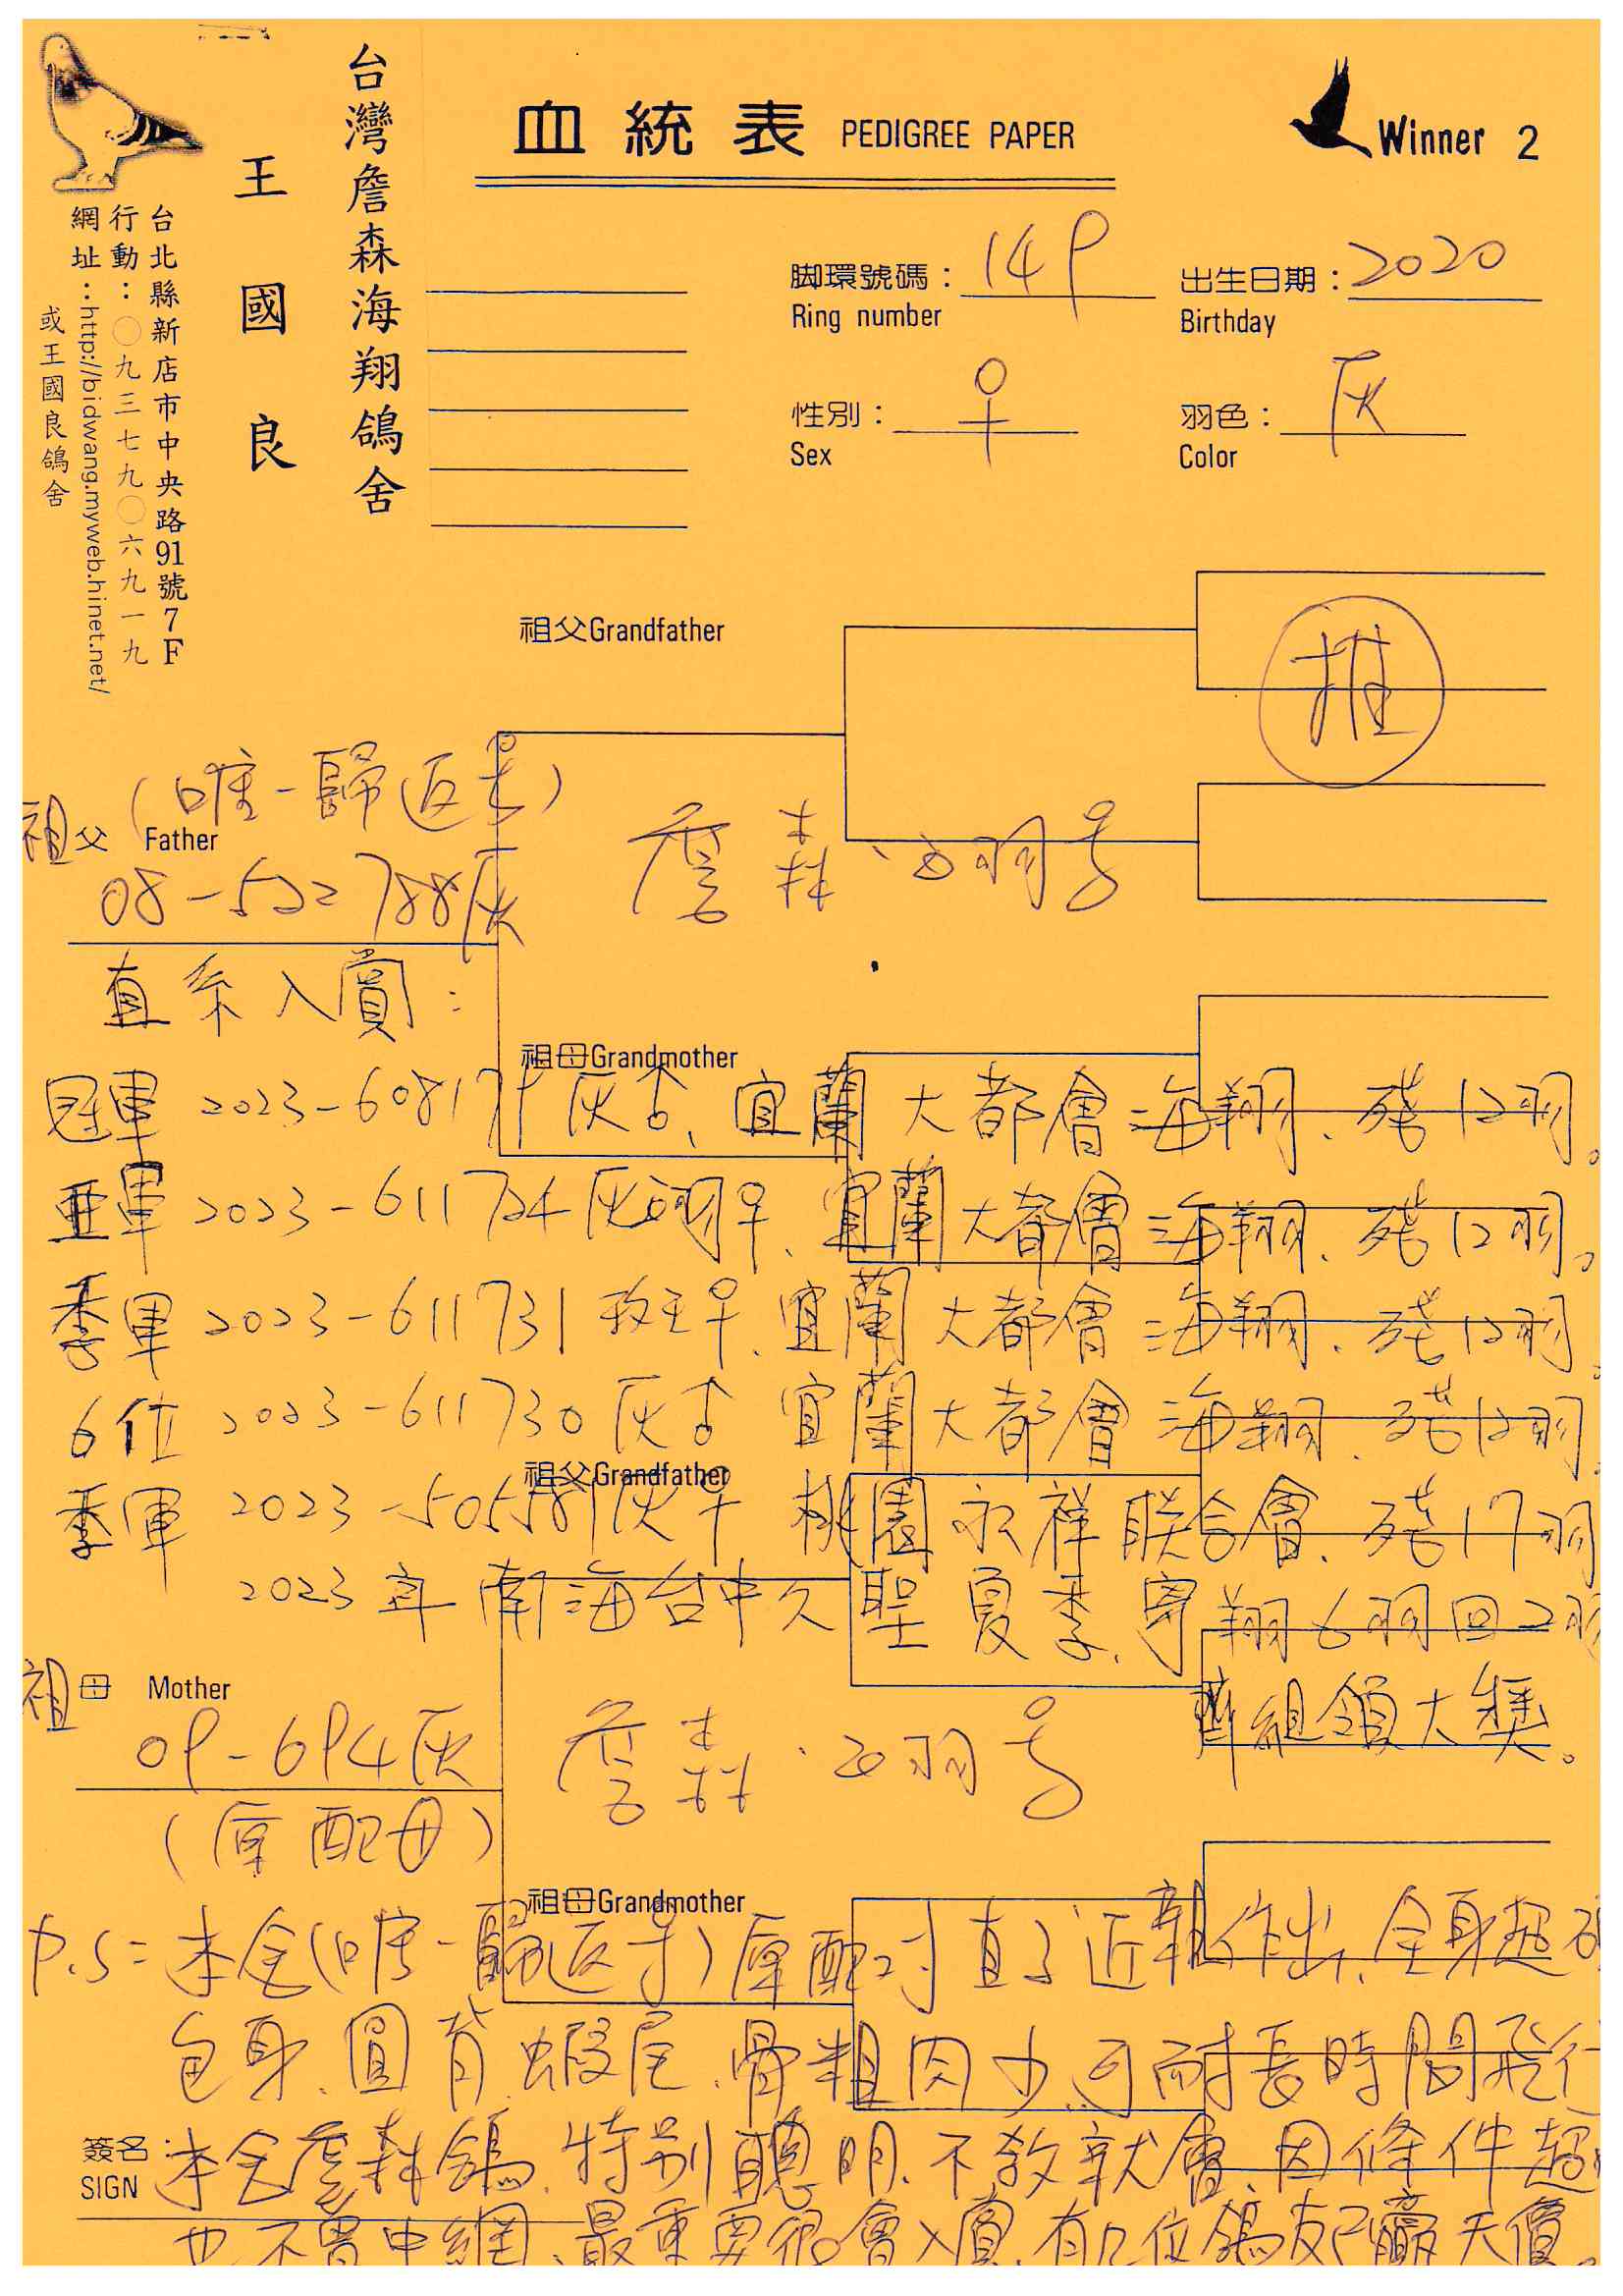 台灣詹森海翔鴿舍
王國良
台北縣新店市中央路91號7F
行動：○九三七九○六九一九
網址：http://bidwang.myweb.hinet.net/
或王國良鴿舍
血統表 PEDIGREE PAPER
Winner 2
脚環號碼： 149
Ring number
出生日期： 2020
Birthday
性別： ♀
Sex
羽色： 灰
Color
祖父Grandfather
推
(唯一歸返号)
祖父 Father
08-522788灰
詹森·白羽号
直系入賞：
祖母Grandmother
冠軍 2023-608171灰♂、宜蘭大都會海翔、殘12羽。
亜軍 2023-611724灰白羽♀、宜蘭大都會海翔、殘12羽。
季軍 2023-611731 斑♀、宜蘭大都會海翔、殘12羽。
6位 2023-611730 灰♂ 宜蘭大都會海翔、殘12羽。
祖父Grandfather
季軍 2023-505581灰♀ 桃園永祥联合會、殘17羽
2023年南海台中久聖夏季、寄翔6羽回2羽
齊組領大獎。
祖母 Mother
09-694灰
詹森·白羽号
(原配母)
祖母Grandmother
P.S= 本舍(唯一歸返号)原配对直子近親作出、全身超
包身、圓背、蝦尾、骨粗肉少、可耐長時間飛行
簽名：
SIGN
本舍詹森鴿、特別聰明、不教就會、因條件超
也不會中網、最重要很會入賞、有几位鴿友已贏天價。